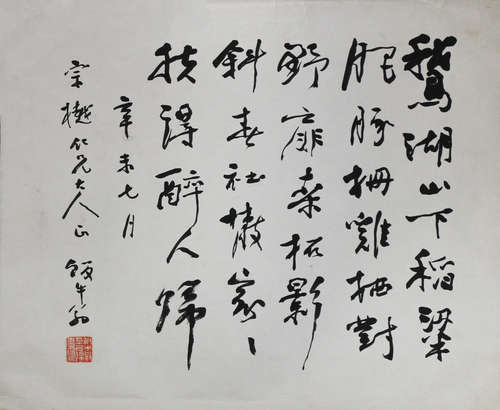 鵞湖山下稻粱
肥豚柵雞栖對
野扉桑柘影
斜春社散家〻
扶得醉人歸
辛未七月
宗樾仁兄大人正 飯牛翁